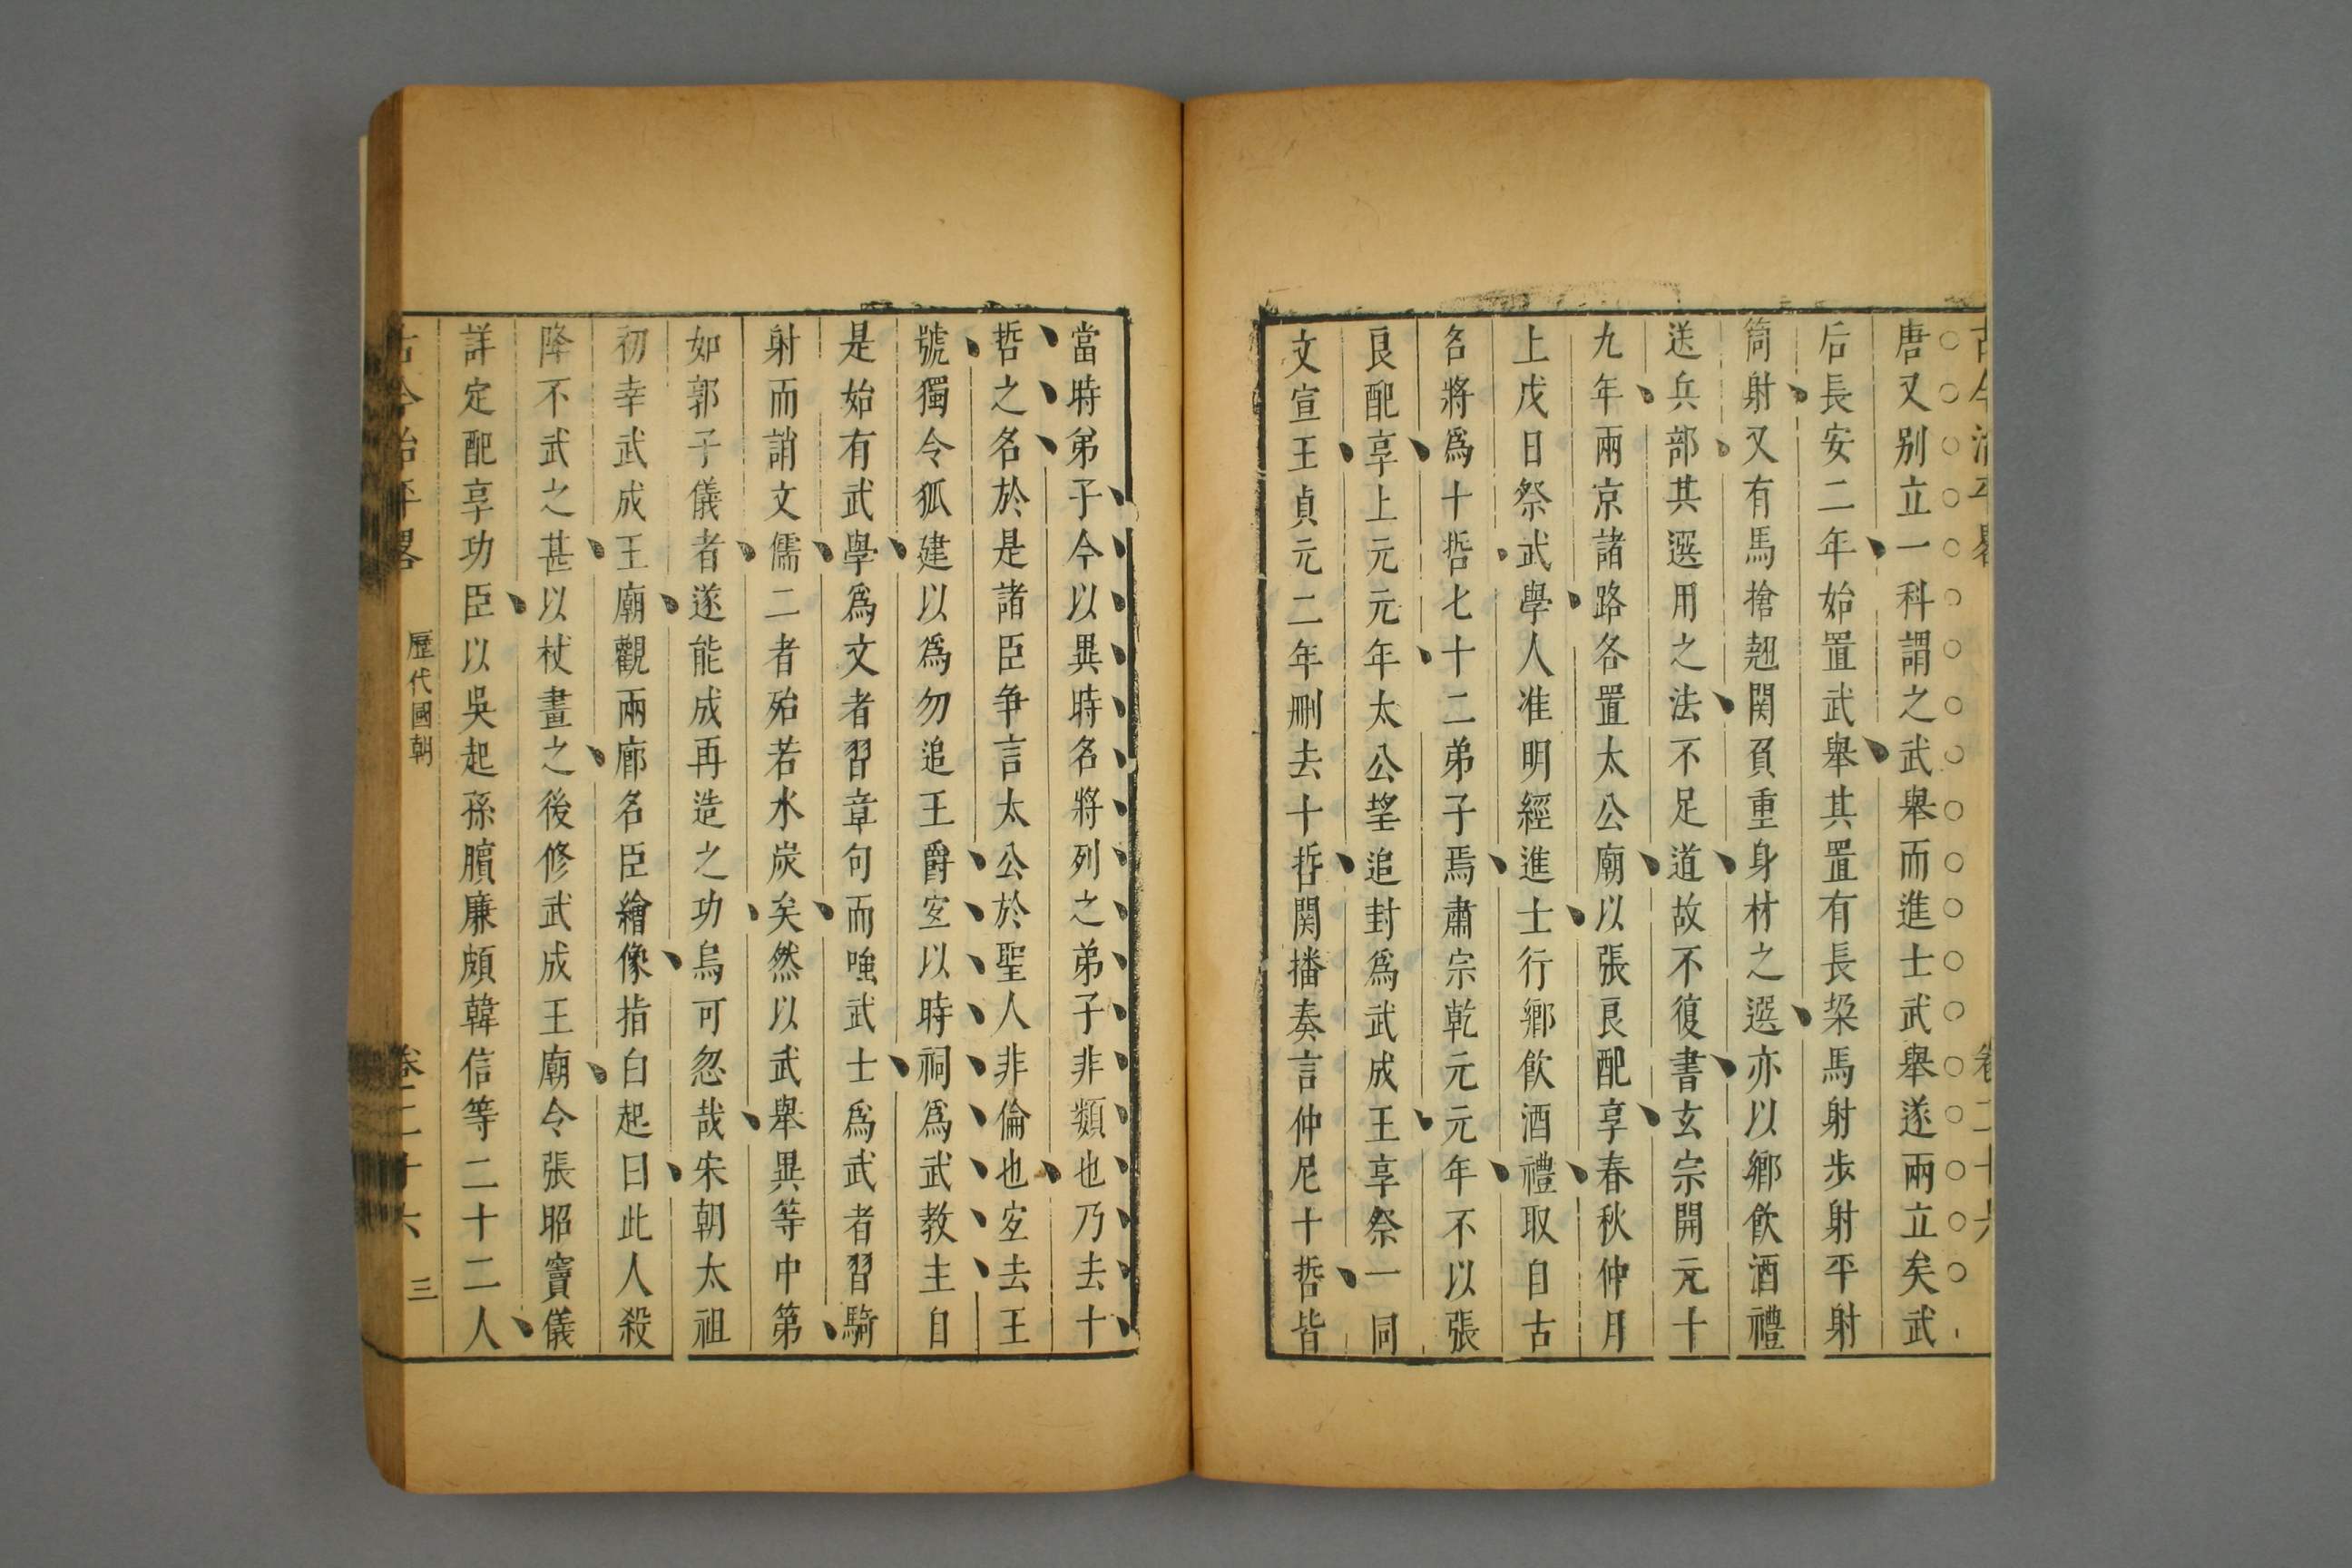 唐又别立一科謂之武舉而進士武舉遂兩立矣武
后長安二年始置武舉其置有長垜馬射步射平射
筒射又有馬搶翹関負重身材之選亦以鄉飲酒禮
送兵部其選用之法不足道故不復書玄宗開元十
九年兩京諸路各置太公廟以張良配享春秋仲月
上戊日祭武學人准明經進士行鄉飲酒禮取自古
名將爲十哲七十二弟子焉肅宗乾元元年不以張
良配享上元元年太公望追封爲武成王享祭一同
文宣王貞元二年刪去十哲関播奏言仲尼十哲皆
當時弟子今以異時名將列之弟子非類也乃去十
哲之名於是諸臣争言太公於聖人非倫也宜去王
號獨令狐建以爲勿追王爵宜以時祠爲武教主自
是始有武學爲文者習章句而嗤武士爲武者習騎
射而誚文儒二者殆若水炭矣然以武舉異等中第
如郭子儀者遂能成再造之功烏可忽哉宋朝太祖
初幸武成王廟觀兩廊名臣繪像指白起曰此人殺
降不武之甚以杖畫之後修武成王廟令張昭竇儀
詳定配享功臣以吳起孫臏廉頗韓信等二十二人
古今治平畧 歷代國朝 卷二十六 三